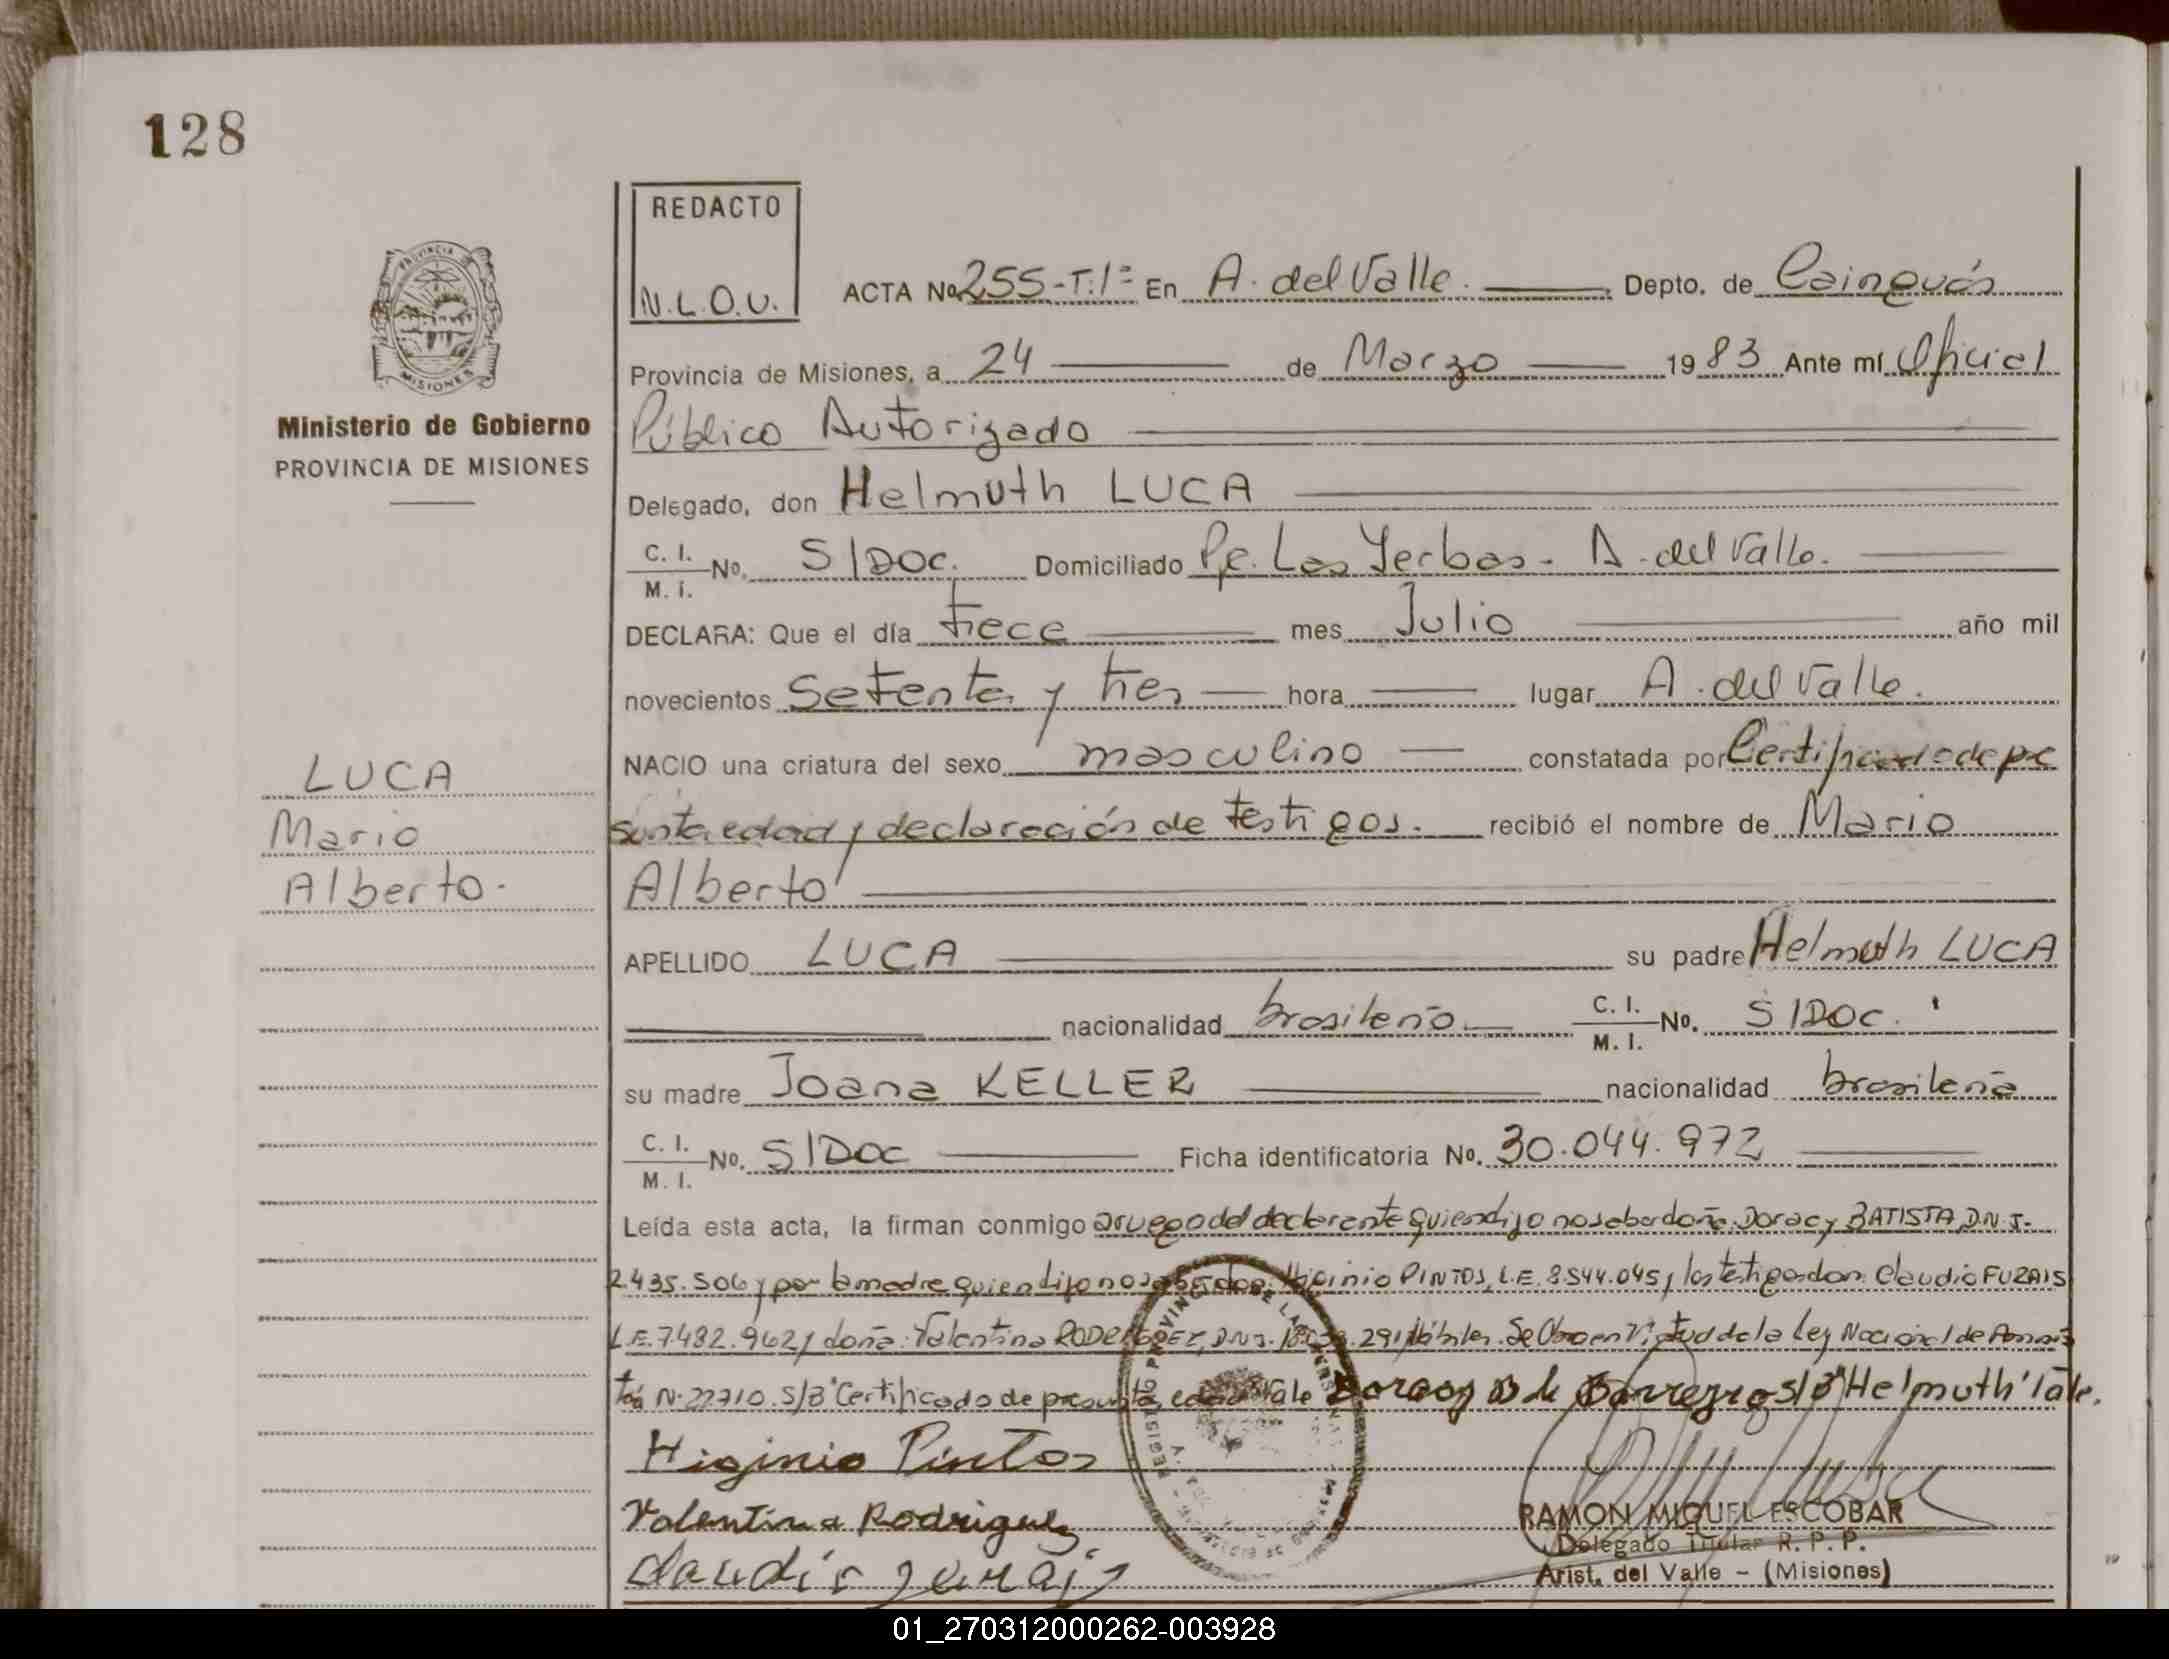 128
REDACTO
N.L.O.U.
PROVINCIA
MISIONES
Ministerio de Gobierno
PROVINCIA DE MISIONES
ACTA No 255-T:1º En A. del Valle. Depto. de Cainguás
Provincia de Misiones, a 24 de Marzo 1983 Ante mí Oficial
Público Autorizado
Delegado, don Helmuth LUCA
C. I. M. I. No. S/DOC. Domiciliado Pje. Las Yerbas - A. del Valle.
DECLARA: Que el día trece mes Julio año mil
novecientos setenta y tres hora lugar A. del Valle.
NACIO una criatura del sexo masculino constatada por Certificado de pre
sunta edad y declaración de testigos. recibió el nombre de Mario
Alberto
LUCA
Mario
Alberto.
APELLIDO LUCA su padre Helmuth LUCA
nacionalidad brasileño C. I. M. I. No. S/DOC.
su madre Joana KELLER nacionalidad brasileña
C. I. M. I. No. S/DOC Ficha identificatoria No. 30.044.972
Leída esta acta, la firman conmigo a ruego del declarante quien dijo no saber doña: Doracy BATISTA, D.N.I.
2.435.506 y por la madre quien dijo no saber don: Higinio PINTOS, L.E. 8.544.045 y los testigos don: Claudio FURAIS
L.E. 7.482.962 y doña: Valentina RODRIGUEZ, D.N.I. 291 hábiles. Se labra en Virtud de la Ley Nacional de Amnis
tía N. 22710. S/B "Certificado de presunta edad" Vale Doracy B de Barreyro S/B "Helmuth" Vale.
Higinio Pintos
Valentina Rodriguez
Claudio Furais
RAMON MIGUEL ESCOBAR
Delegado Titular R. P. P.
Arist. del Valle - (Misiones)
01_270312000262-003928